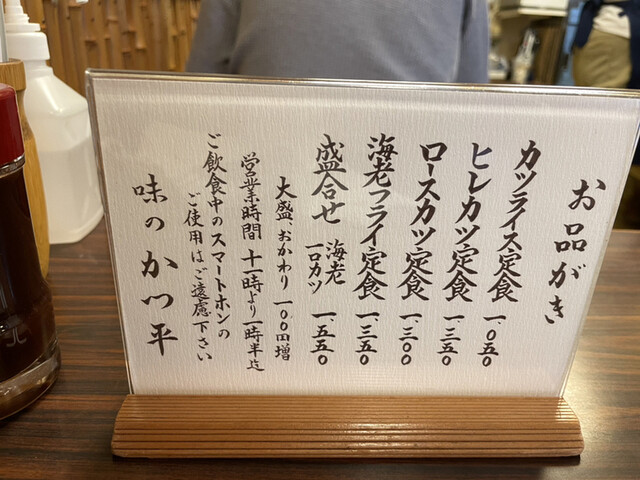 お品がき
カツライス定食 一、〇五〇
ヒレカツ定食 一、三五〇
ロースカツ定食 一、三〇〇
海老フライ定食 一、三五〇
盛合せ 海老 一口カツ 一、五五〇
大盛、おかわり 一〇〇円増
営業時間 十一時より一時半迄
ご飲食中のスマートホンの
ご使用はご遠慮下さい
味のかつ平